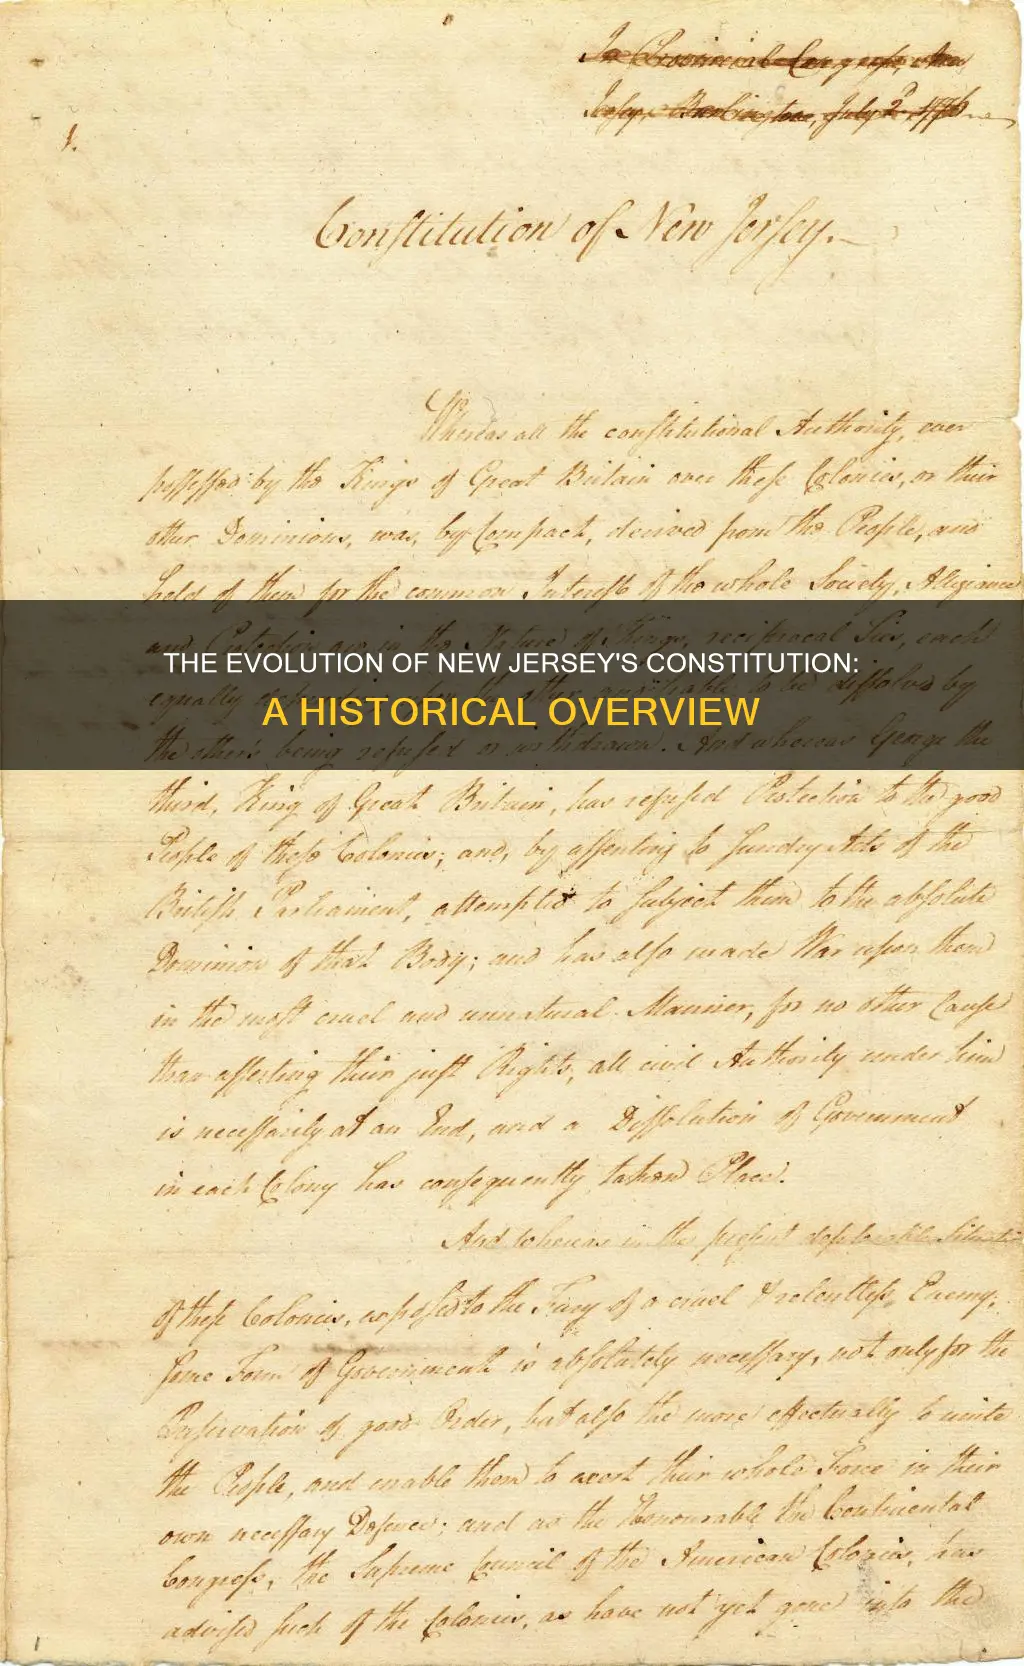 In Provincial Congress, New
Jersey, Burlington, July 2d 1776
1.
Constitution of New Jerſey.
Whereas all the conſtitutional Authority, ever
poſſeſſed by the Kings of Great Britain over theſe Colonies, or their
other Dominions, was, by Compact, derived from the People, and
held of them for the common Intereſt of the whole Society, Allegiance
and Protection are in the Nature of Things, reciprocal Ties, each
THE EVOLUTION OF NEW JERSEY'S CONSTITUTION:
equally depending upon the other and liable to be diſſolved by
A HISTORICAL OVERVIEW
the other's being refuſed or withdrawn. And whereas George the
third, King of Great Britain, has refuſed Protection to the good
People of theſe Colonies; and, by aſſenting to ſundry Acts of the
Britiſh Parliament, attempted to ſubject them to the abſolute
Dominion of that Body; and has alſo made War upon them
in the moſt cruel and unnatural Manner, for no other Cauſe
than aſſerting their juſt Rights, all civil Authority under him
is neceſſarily at an End, and a Diſſolution of Government
in each Colony has conſequently taken Place.
And whereas in the preſent deplorable Situation
of theſe Colonies, expoſed to the Fury of a cruel & relentleſs Enemy,
ſome Form of Government is abſolutely neceſſary, not only for the
Preſervation of good Order, but alſo the more effectually to unite
the People, and enable them to exert their whole Force in their
own neceſſary Defence; and as the Honourable the Continental
Congreſs, the Supreme Council of the American Colonies, has
adviſed ſuch of the Colonies, as have not yet gone into the